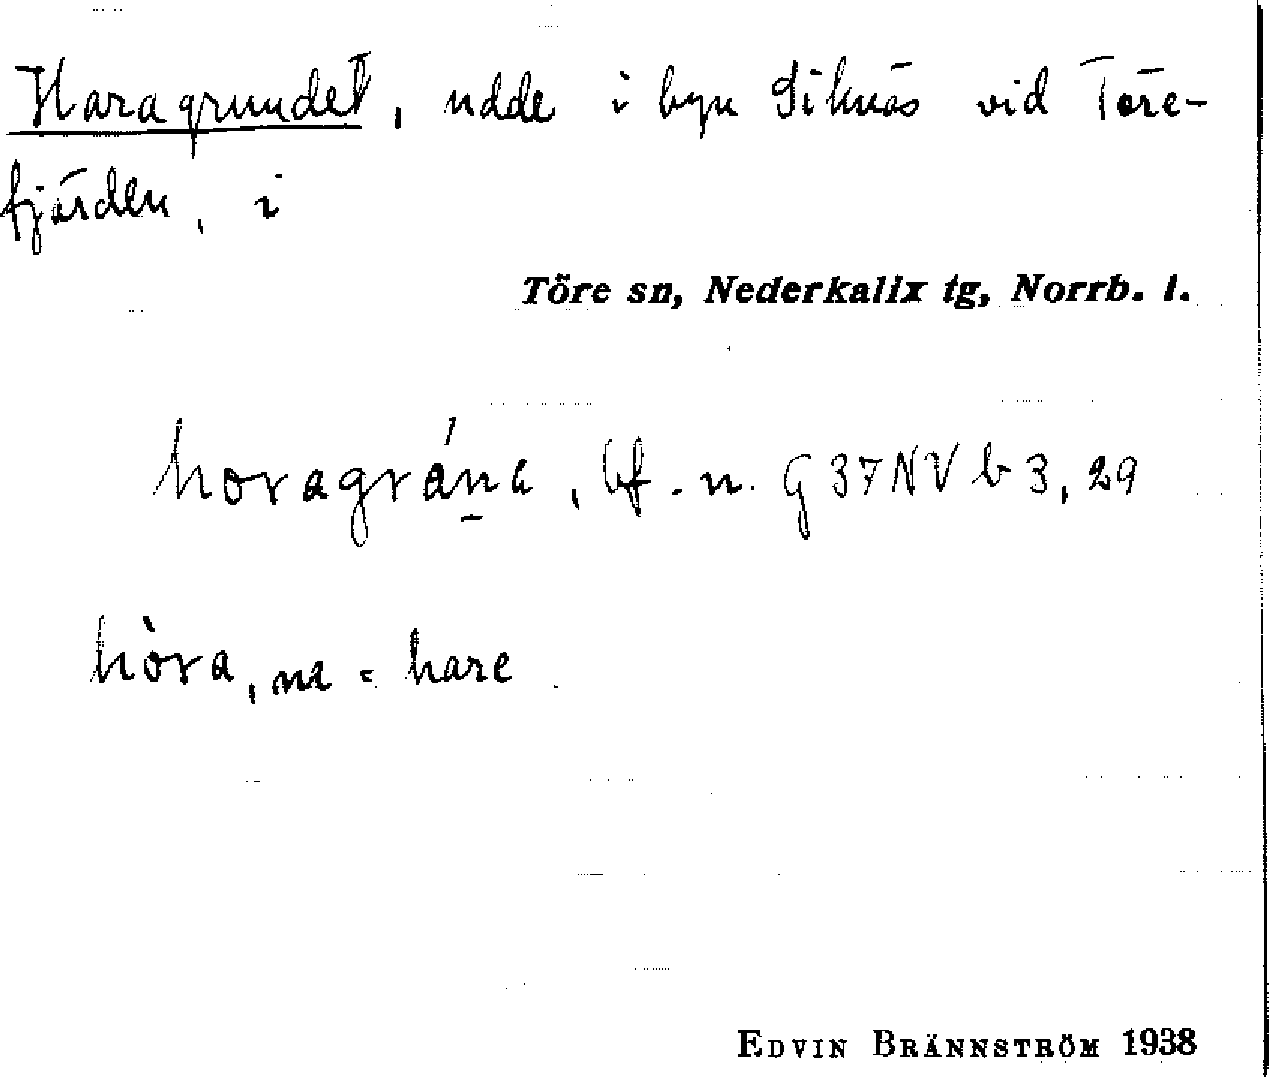 Haragrundet, udde i byn Siknäs vid Töre-
fjärden, i
Töre sn, Nederkalix tg, Norrb. l.
horagrána, bf. n. G 37 NV b 3, 29
hòra, m = hare
EDVIN BRÄNNSTRÖM 1938